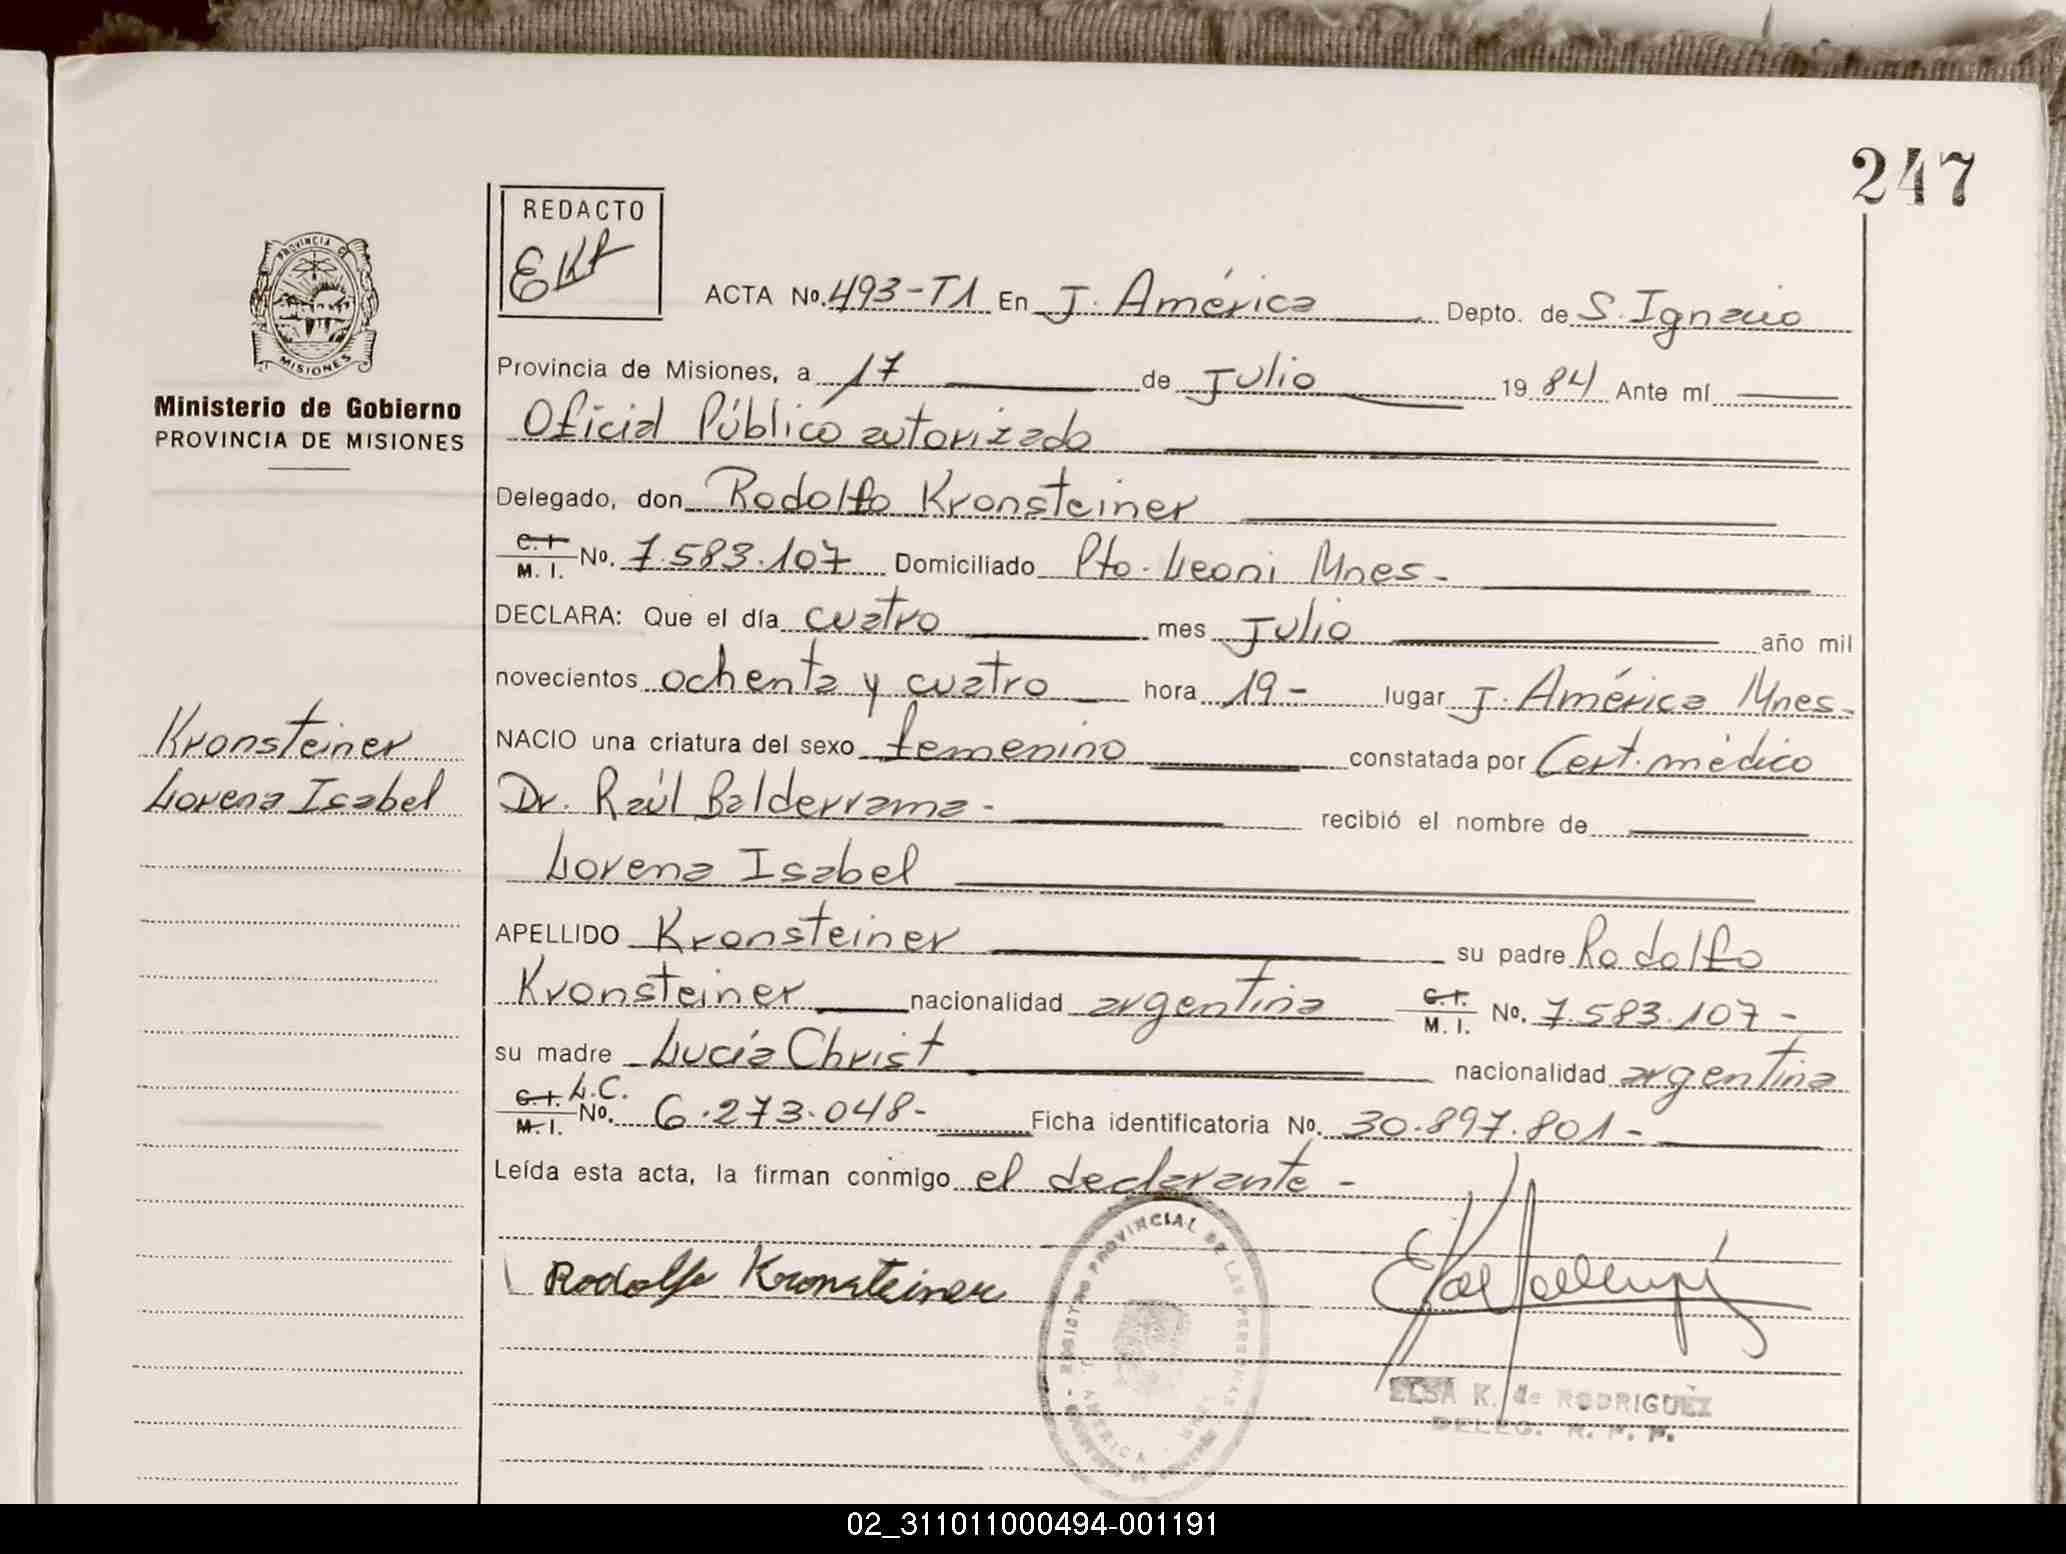 247
REDACTO
EKR
PROVINCIA DE
MISIONES
Ministerio de Gobierno
PROVINCIA DE MISIONES
ACTA No. 493-T1 En J. América Depto. de S. Ignacio
Provincia de Misiones, a 17 de Julio 19 84 Ante mí
Oficial Público autorizado
Delegado, don Rodolfo Kronsteiner
C.I. M. I. No. 7.583.107 Domiciliado Pto. Leoni Mnes.
DECLARA: Que el día cuatro mes Julio año mil
novecientos ochenta y cuatro hora 19- lugar J. América Mnes.
Kronsteiner
Lorena Isabel
NACIO una criatura del sexo femenino constatada por Cert. médico
Dr. Raúl Balderrama- recibió el nombre de
Lorena Isabel
APELLIDO Kronsteiner su padre Rodolfo
Kronsteiner nacionalidad argentina C.I. M. I. No. 7.583.107-
su madre Lucía Christ nacionalidad argentina
C.I. M. I. L.C. No. 6.273.048- Ficha identificatoria No. 30.897.801-
Leída esta acta, la firman conmigo el declarante-
Rodolfo Kronsteiner
REGISTRO PROVINCIAL DE LAS PERSONAS
AMERICA
ELSA K. de RODRIGUEZ
DELEG. R. P. P.
02_311011000494-001191